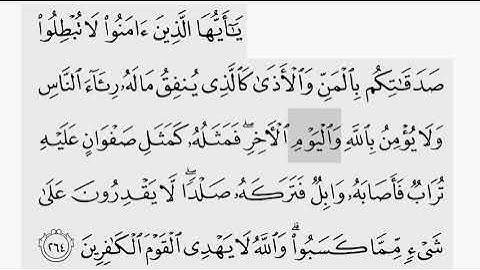 يَٰٓأَيُّهَا ٱلَّذِينَ ءَامَنُوا۟ لَا تُبْطِلُوا۟
صَدَقَٰتِكُم بِٱلْمَنِّ وَٱلْأَذَىٰ كَٱلَّذِى يُنفِقُ مَالَهُۥ رِئَآءَ ٱلنَّاسِ
وَلَا يُؤْمِنُ بِٱللَّهِ وَٱلْيَوْمِ ٱلْـَٔاخِرِ ۖ فَمَثَلُهُۥ كَمَثَلِ صَفْوَانٍ عَلَيْهِ
تُرَابٌ فَأَصَابَهُۥ وَابِلٌ فَتَرَكَهُۥ صَلْدًا ۖ لَّا يَقْدِرُونَ عَلَىٰ
شَىْءٍ مِّمَّا كَسَبُوا۟ ۗ وَٱللَّهُ لَا يَهْدِى ٱلْقَوْمَ ٱلْكَٰفِرِينَ ٢٦٤